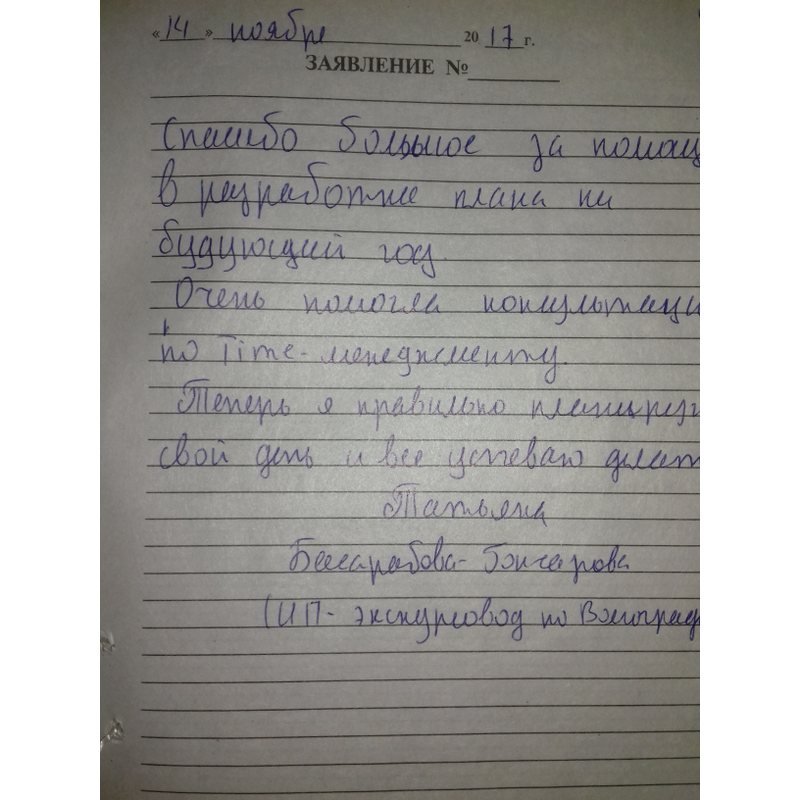 «14» ноября 2017 г.
ЗАЯВЛЕНИЕ №
Спасибо большое за помощ
в разработке плана на
будующий год.
Очень помогла консультаци
по Time-менеджменту.
Теперь я правильно планирую
свой день и все успеваю делат
Татьяна
Басарабова-Гончарова
(ИП- экскурсовод по Волоград